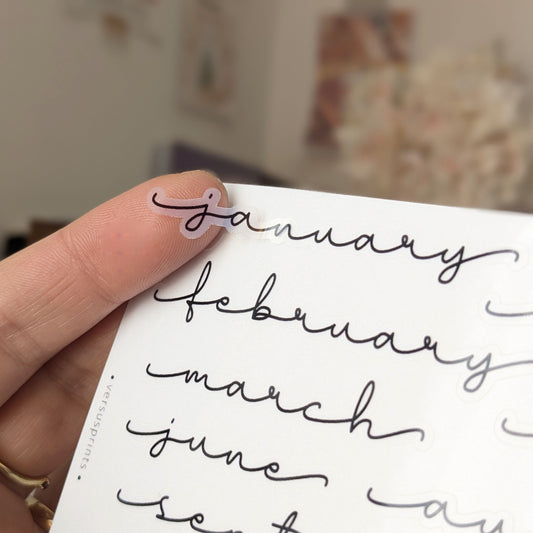 january
february
march
june
• versusprints •